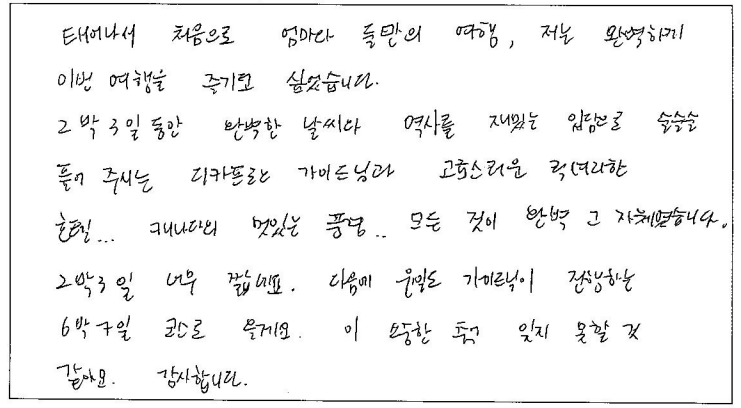 태어나서 처음으로 엄마와 둘만의 여행, 저는 완벽하게
이번 여행을 즐기고 싶었습니다.
2박 3일 동안 완벽한 날씨와 역사를 재밌는 입담으로 술술술
풀어 주시는 디카프리오 가이드님과 고급스러운 럭셔리한
호텔... 캐나다의 멋있는 풍경.. 모든 것이 완벽 그 자체였습니다.
2박3일 너무 짧네요. 다음에 가이드님이 진행하는
6박 7일 코스로 올게요. 이 소중한 추억 잊지 못할 것
같아요. 감사합니다.